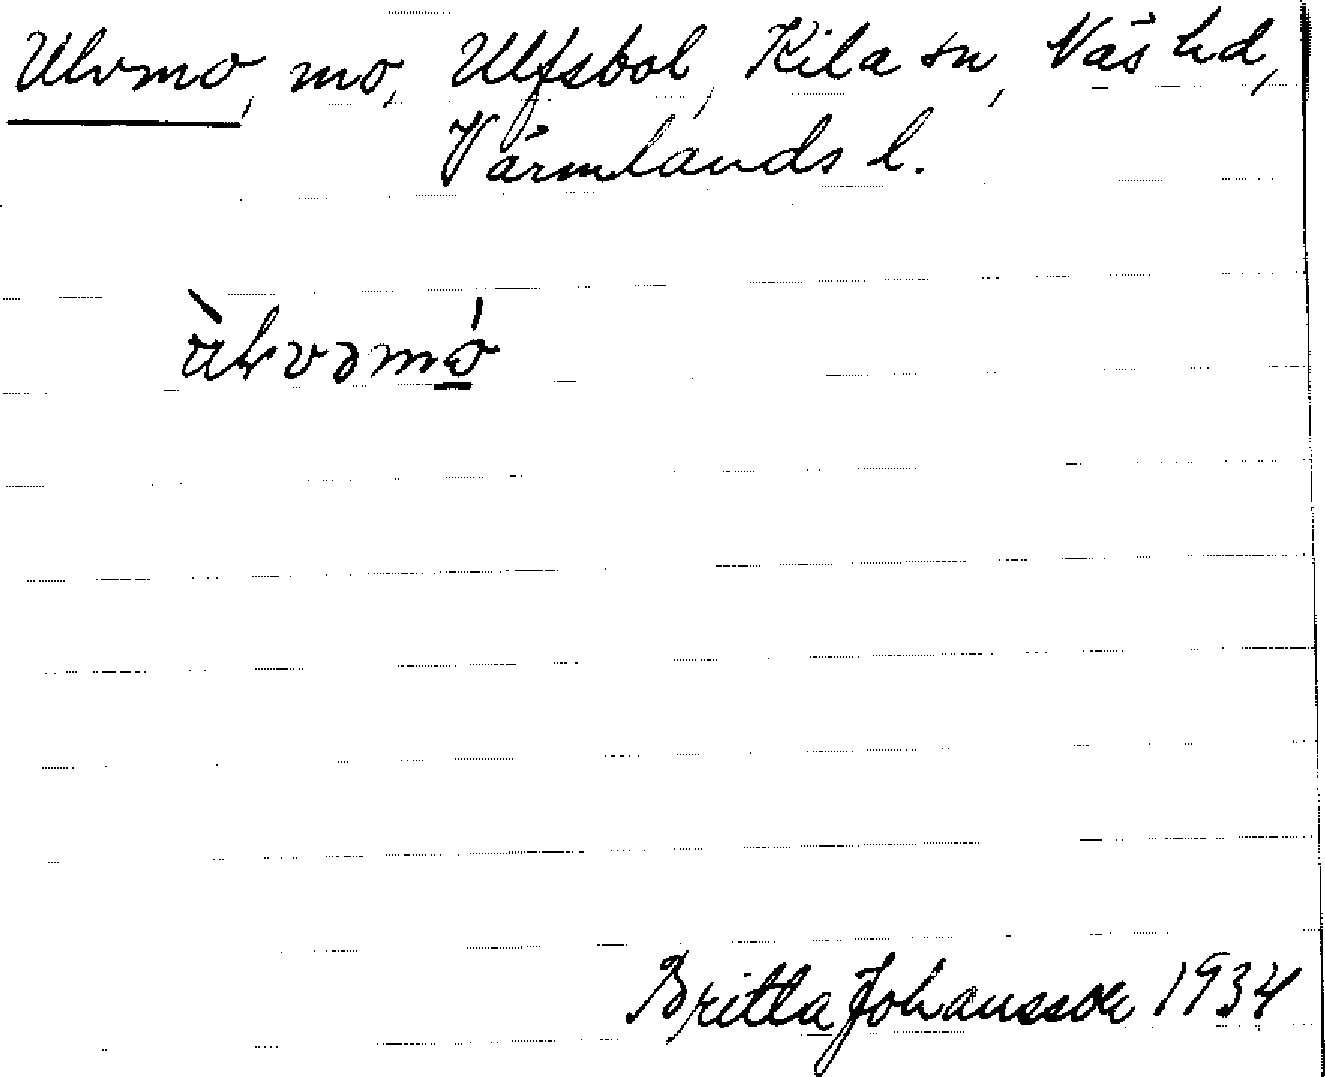 Ulvmo, mo, Ulfsbol, Kila sn, Näs hd,
Värmlands l.
Britta Johansson 1934